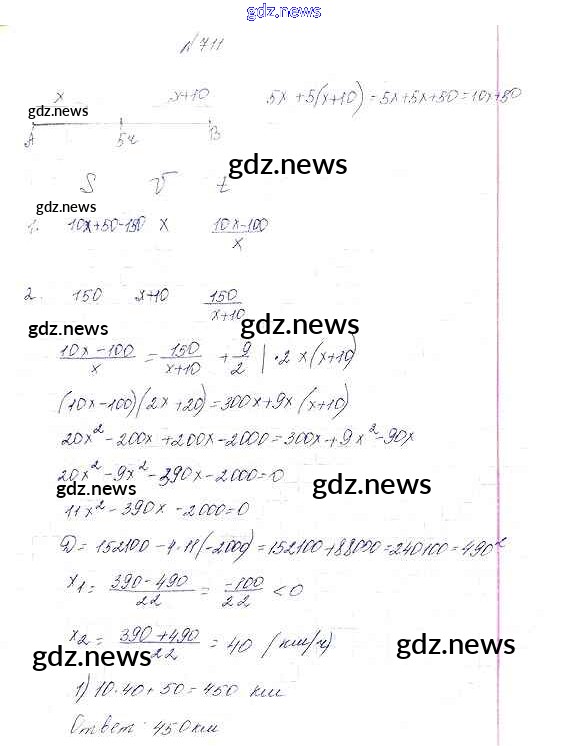 gdz.news
N 711
x x+10 5x + 5(x+10) = 5x+5x+50 = 10x+50
gdz.news
A 5ч B
gdz.news
S V t
gdz.news
1. 10x+50-150 x (10x-100)/x
2. 150 x+10 150/(x+10)
gdz.news gdz.news
(10x-100)/x = 150/(x+10) + 9/2 | ·2x(x+10)
(10x-100)(2x+20)=300x+9x(x+10)
20x²-200x+200x-2000=300x+9x²-90x
20x²-9x²-390x-2000=0
gdz.news gdz.news
11x²-390x-2000=0
D = 152100-4·11(-2000)=152100+88000=240100=490²
x1 = (390-490)/22 = -100/22 < 0
x2 = (390+490)/22 = 40 (км/ч)
gdz.news gdz.news
1) 10·40+50=450 км
Ответ: 450км